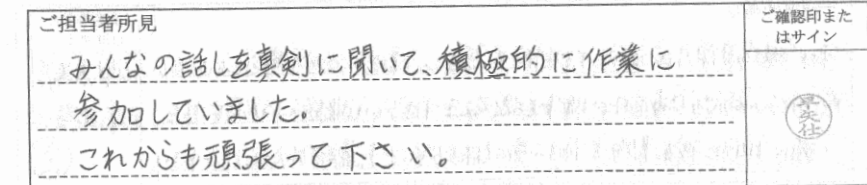 ご担当者所見
みんなの話しを真剣に聞いて、積極的に作業に
参加していました。
これからも頑張って下さい。
ご確認印また
はサイン